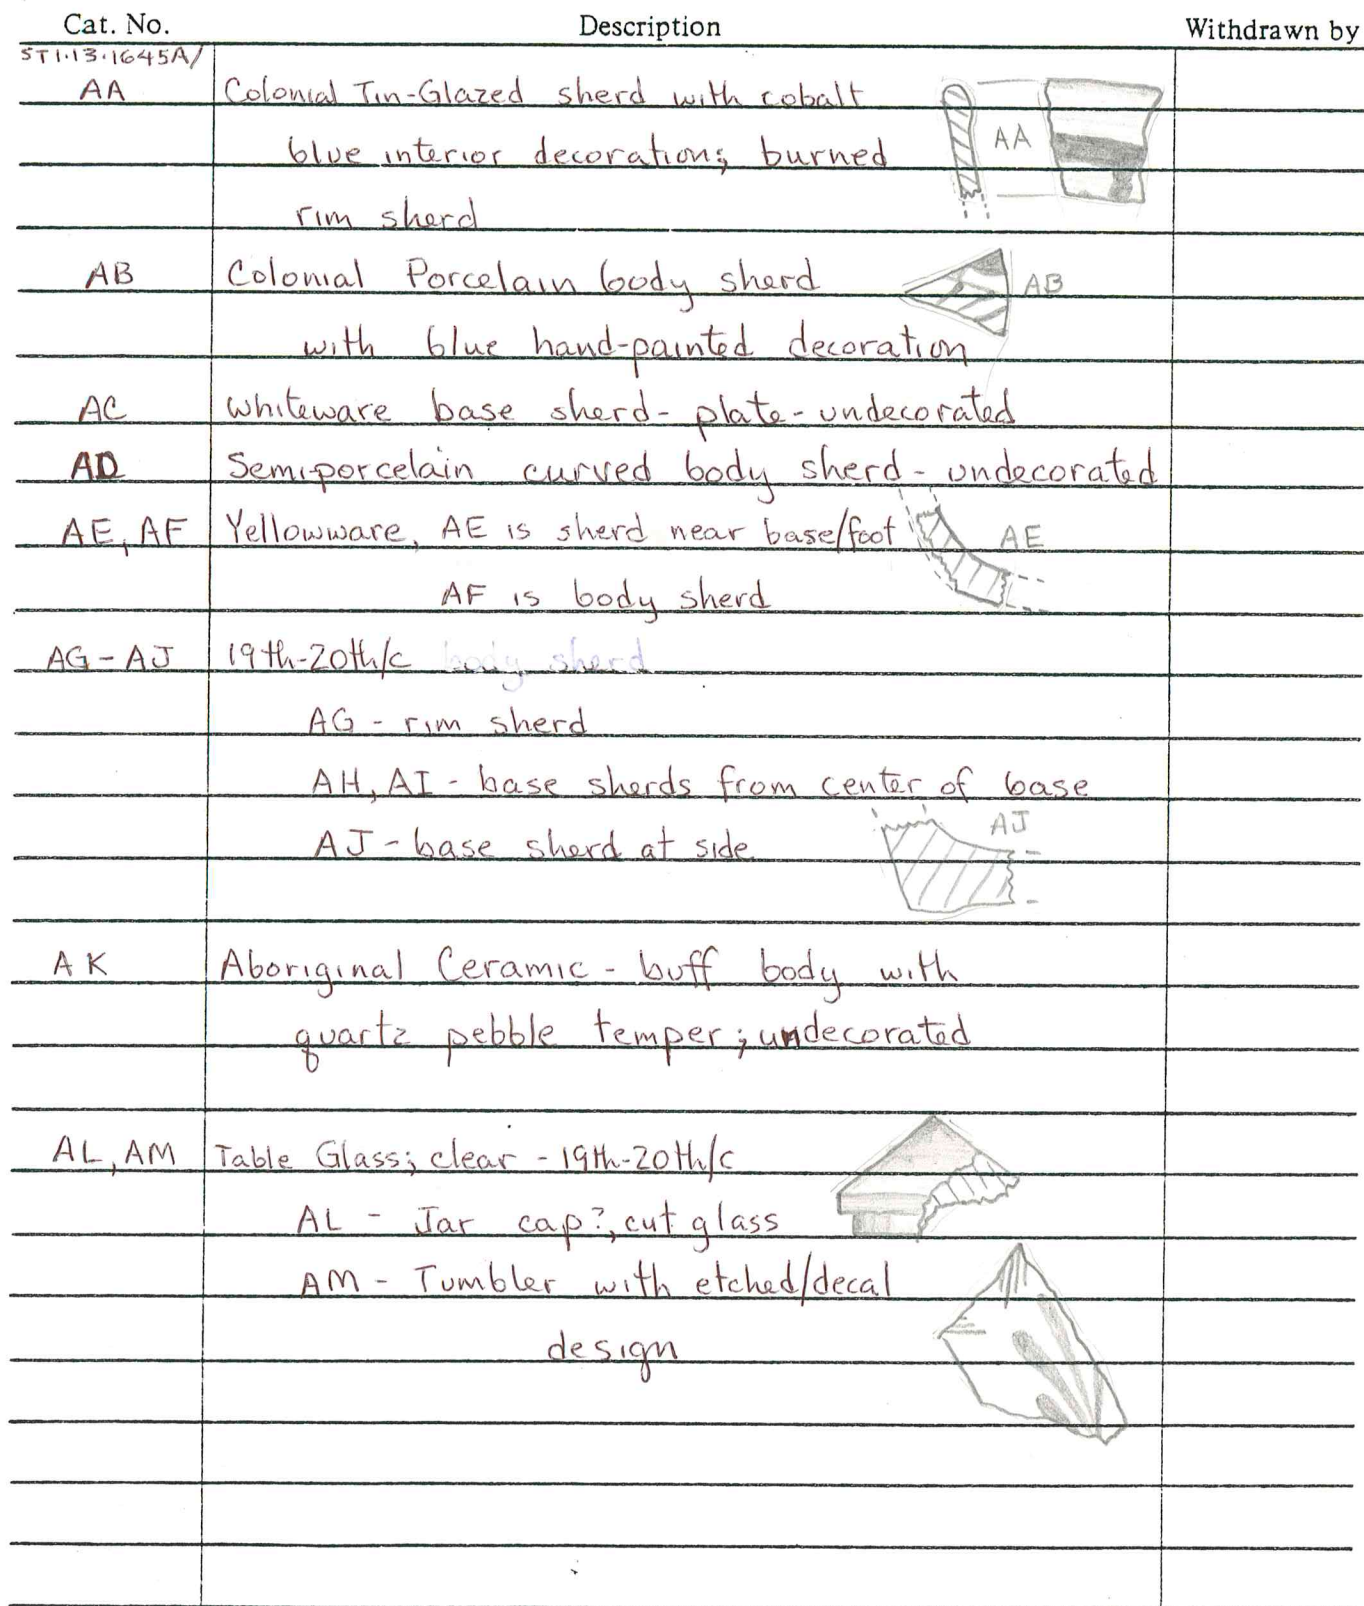 Cat. No. Description Withdrawn by
ST1.13.1645A/
AA Colonial Tin-Glazed sherd with cobalt
blue interior decorations; burned
AA
rim sherd
AB Colonial Porcelain body sherd AB
with blue hand-painted decoration
AC Whiteware base sherd - plate - undecorated
AD Semiporcelain curved body sherd - undecorated
AE, AF Yellowware, AE is sherd near base/foot AE
AF is body sherd
AG - AJ 19th-20th/c body sherd
AG - rim sherd
AH, AI - base sherds from center of base
AJ - base sherd at side AJ
AK Aboriginal Ceramic - buff body with
quartz pebble temper; undecorated
AL, AM Table Glass; clear - 19th-20th/c
AL - Jar cap?, cut glass
AM - Tumbler with etched/decal
design